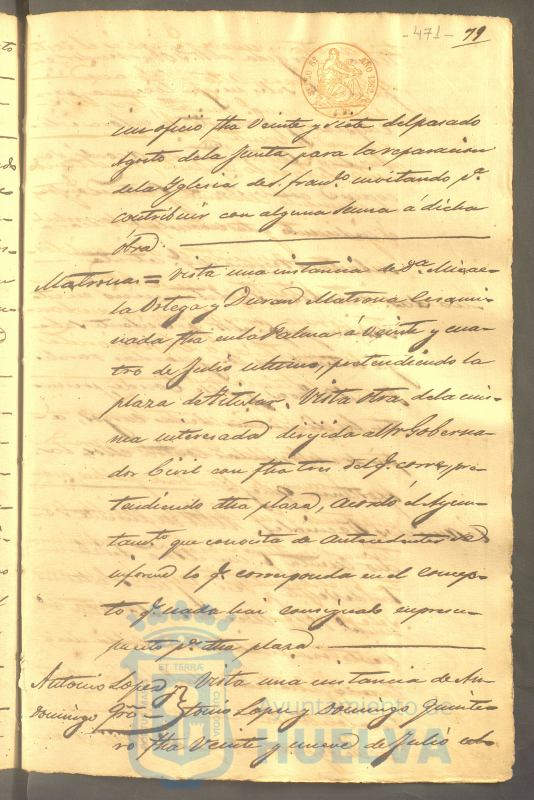 - 471 - 79
un oficio fha Veinte y siete del pasado
Agosto dela Junta para la reparacion
dela Yglesia de S. Fran.co invitando p.a
contribuir con alguna suma á dicha
óbra.
Matronas = Vista una instancia de D.a Micae-
la Ortega y Duran Matrona Exsami-
nada fha en la Palma á veinte y cua-
tro de Julio ultimo, pretendiendo la
plaza de titular. Vista otra dela mis-
ma interesada dirijida al Sr Goberna-
dor Civil con fha tres del q.e corre, pre-
tendiendo dha plaza, acordó el Ayun-
tam.to que con vista de antecedentes se
informe lo q.e corresponda en el concep-
to q.e nada hai consignado en presu-
puesto p.a dha plaza.
Antonio Lopez y Vista una instancia de An-
Domingo Qro tonio Lopez y Domingo Quinte-
ro fha Veinte y nueve de Julio
ET TERRÆ
Ayuntamiento de
HUELVA